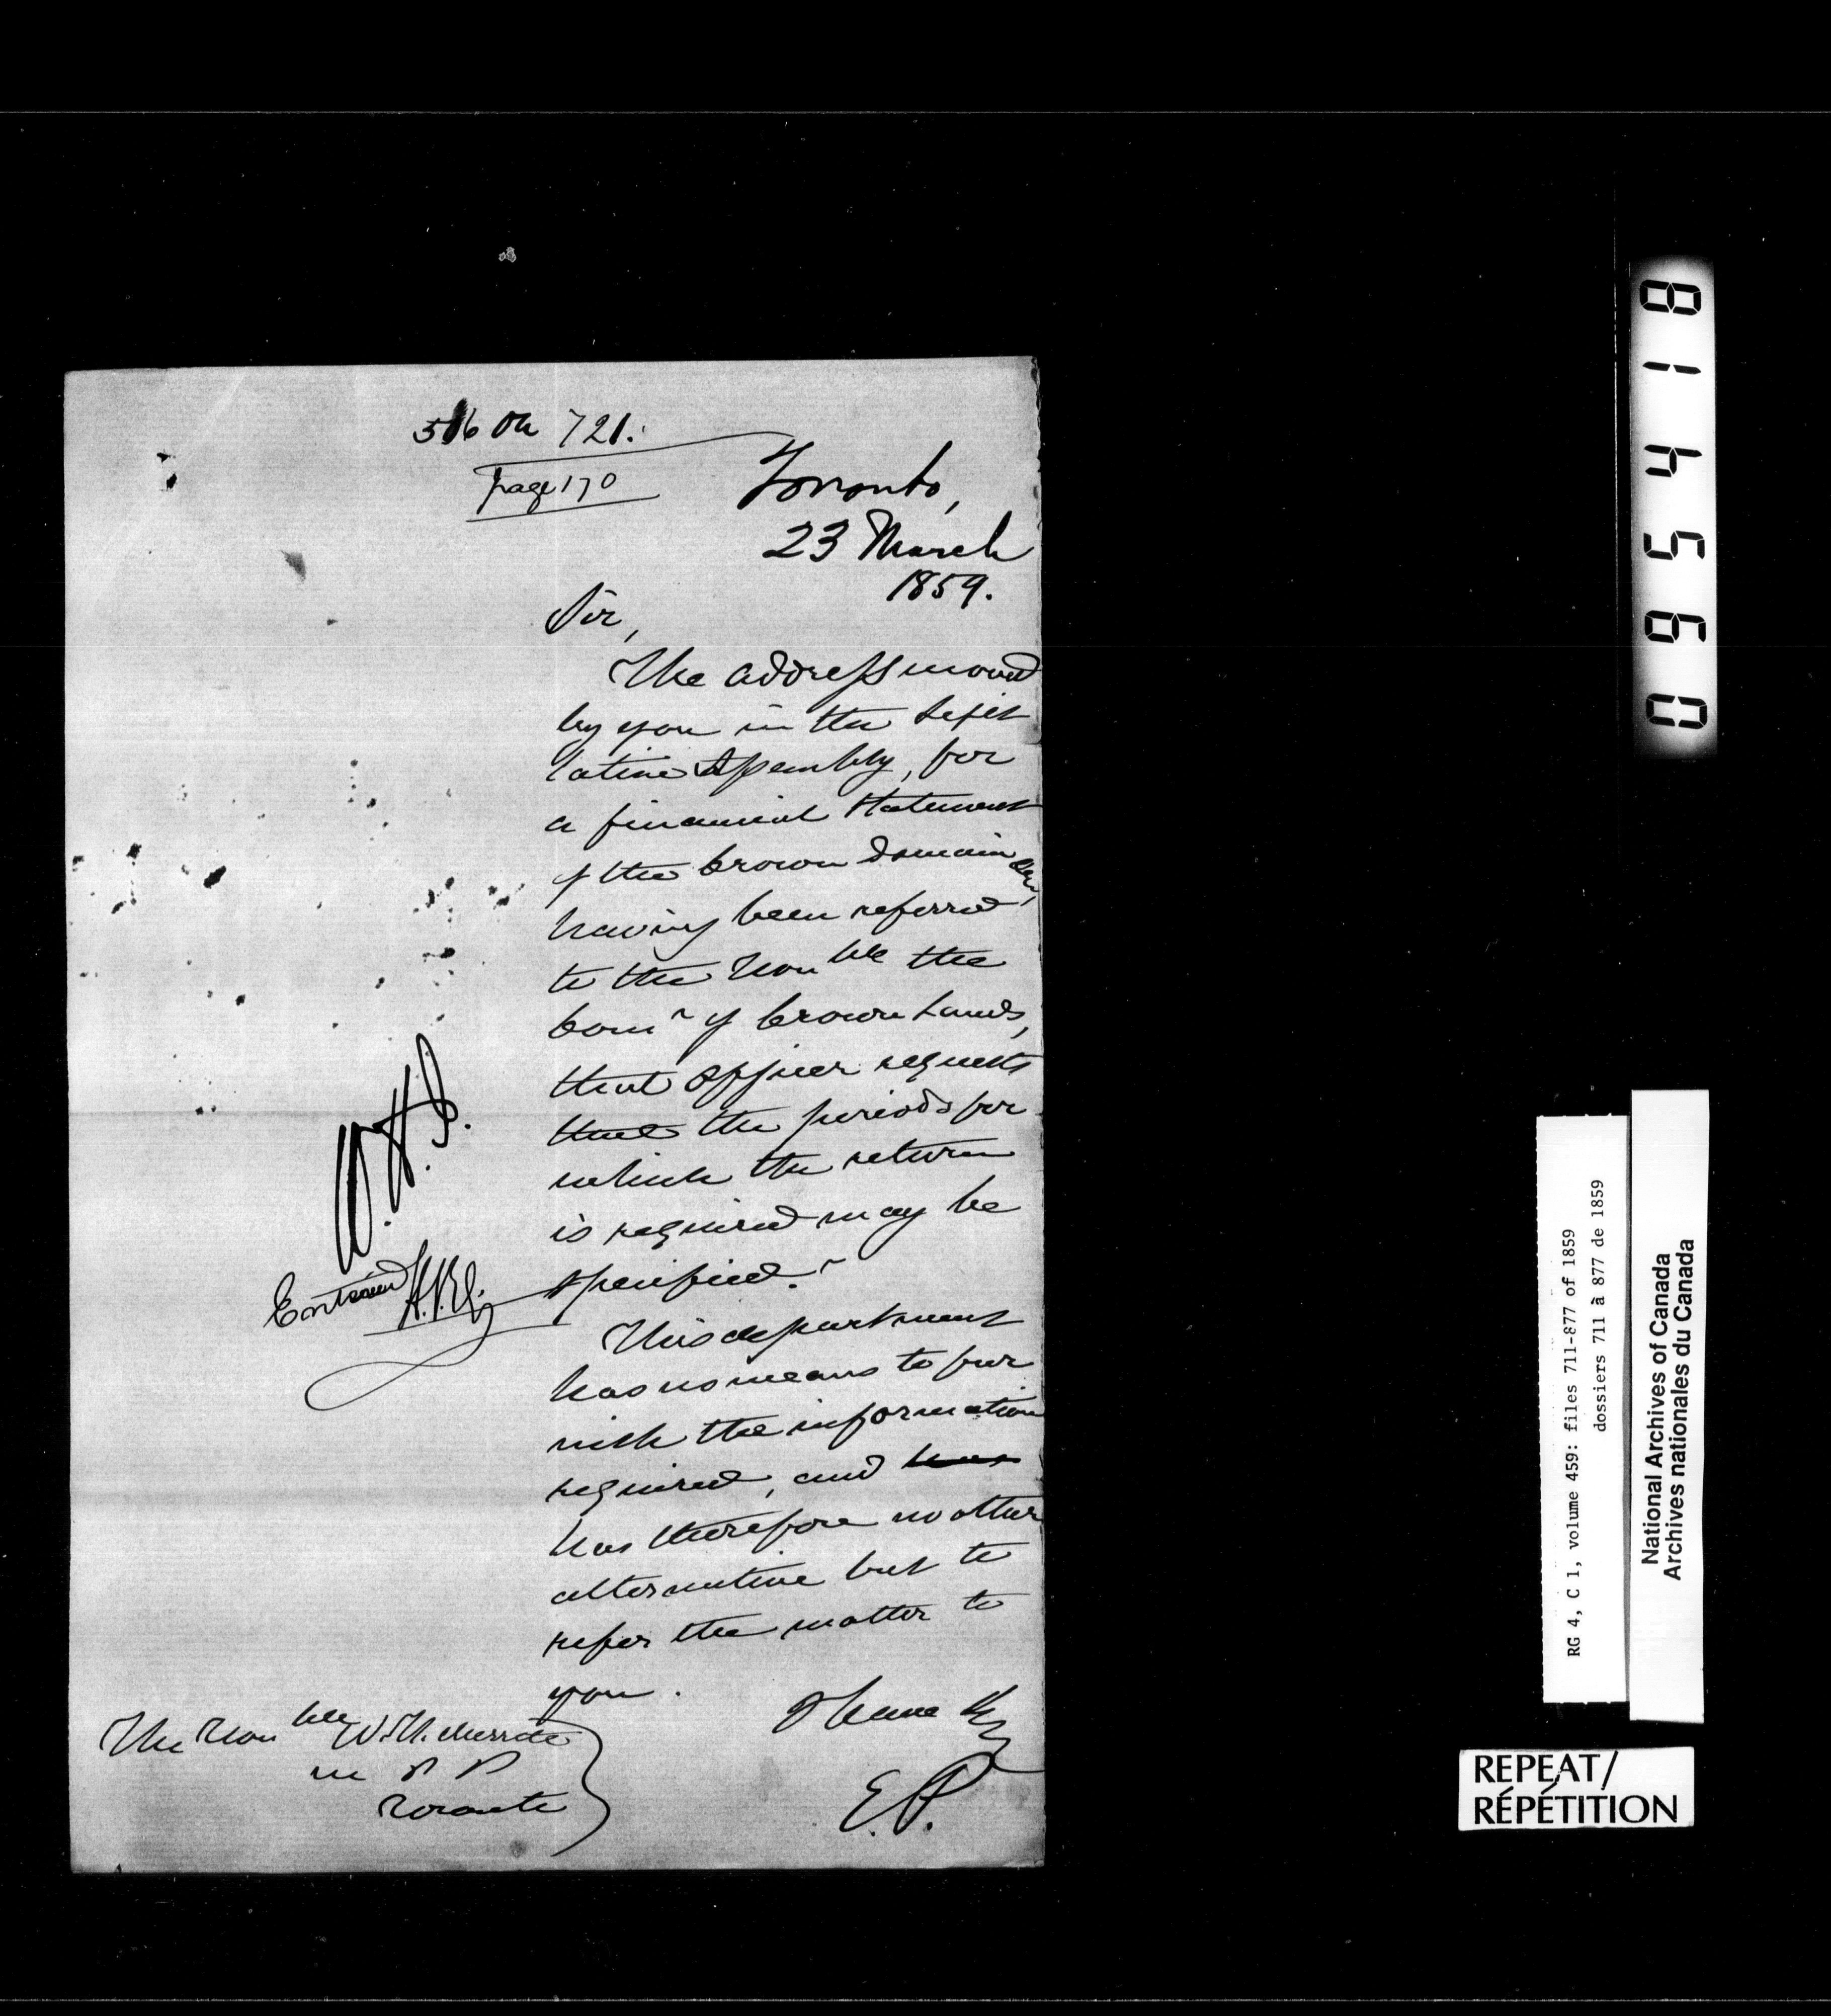 516 on 721.
page 170
Toronto,
23 March
1859.
Sir,
The address moved
by you in the Legis
lative Assembly, for
a financial statement
of the Crown domain &c,
having been referred
to the Honble the
Comr of Crown Lands,
that officer requests
that the periods for
which the return
is required may be
specified.
This department
has no means to fur
nish the information
required, and has
has therefore no other
alternative but to
refer the matter to
you.
I have &c
E.P.
The Honble W.H. Merritt
M P P
Toronto
W.H.
Entered
095418
RG 4, C 1, volume 459: files 711-877 of 1859
dossiers 711 à 877 de 1859
National Archives of Canada
Archives nationales du Canada
REPEAT/
RÉPÉTITION